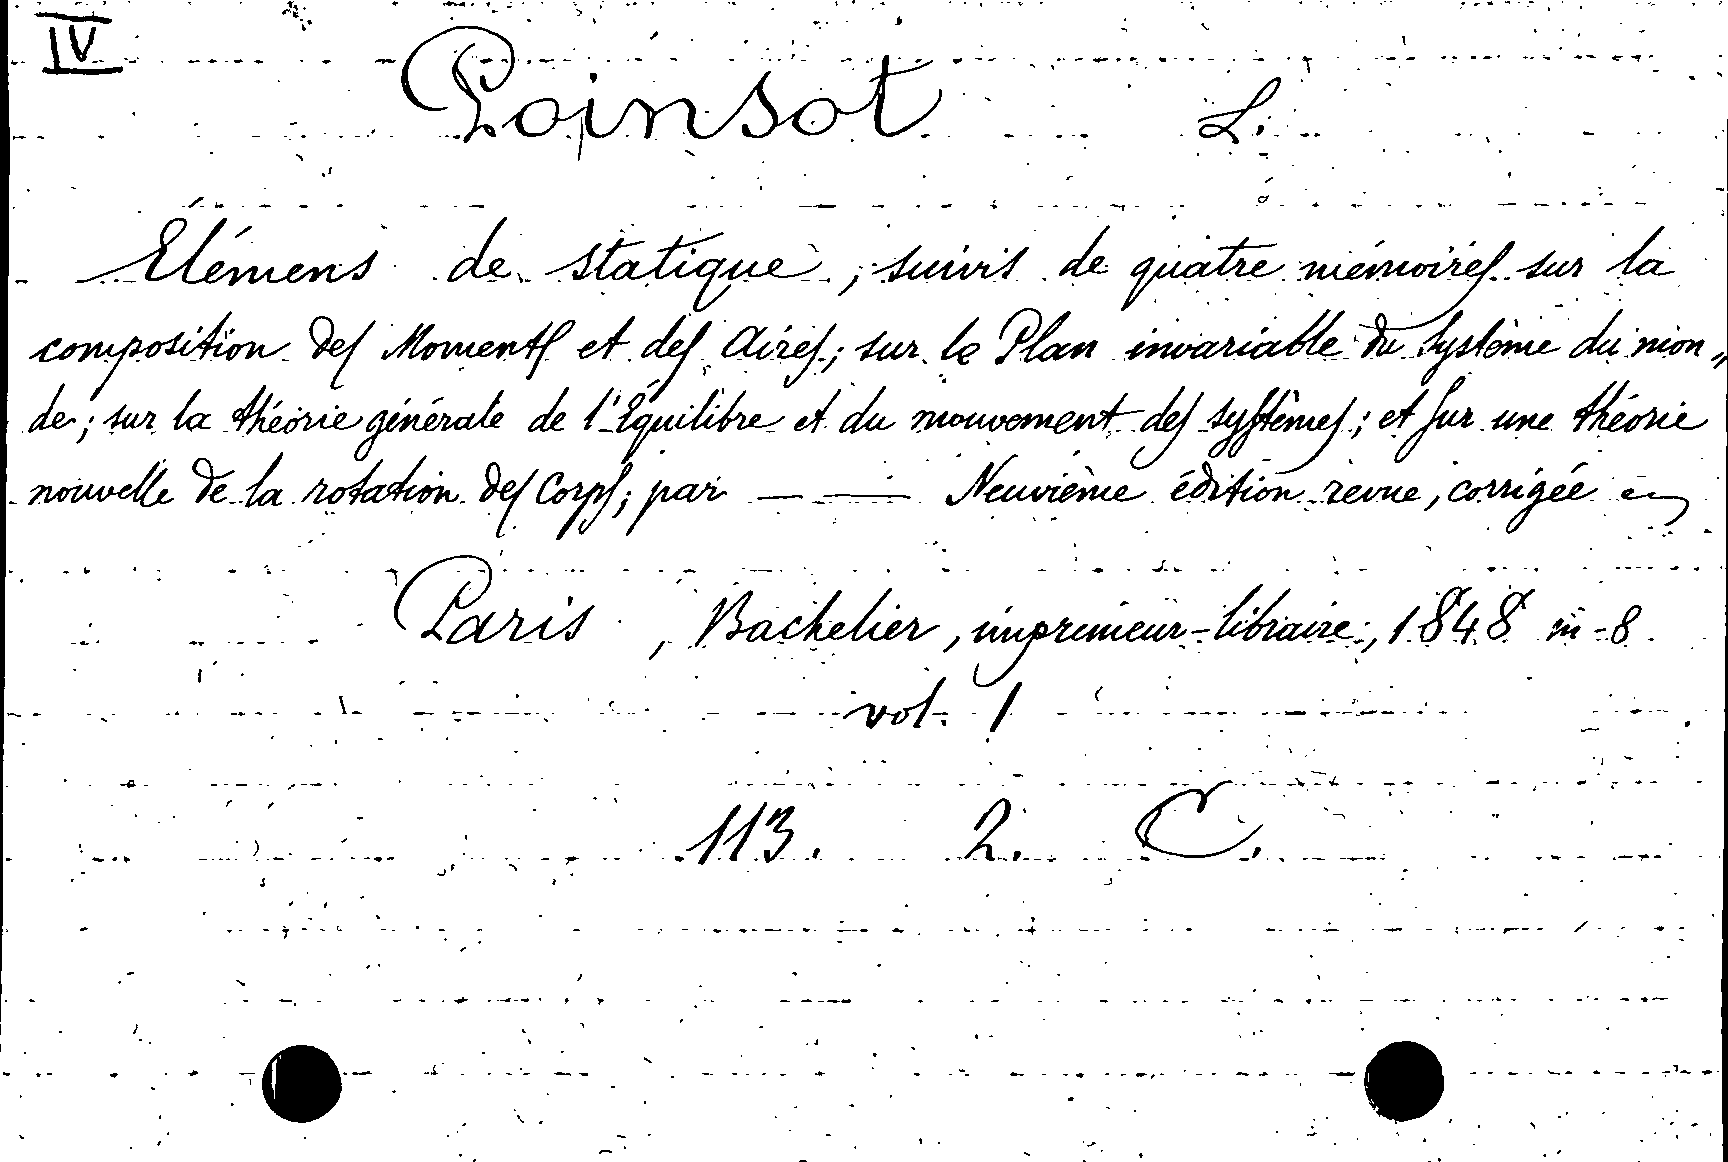 IV
Poinsot L.
Elémens de statique, suivis de quatre mémoires sur la
composition des Moments et des Aires; sur le Plan invariable du Système du mon„
de; sur la théorie générale de l'Équilibre et du mouvement des systèmes; et sur une théorie
nouvelle de la rotation des Corps; par — — Neuvième édition revue, corrigée
Paris, Bachelier, imprimeur-libraire, 1848 in-8
vol. 1
113. 2. C.